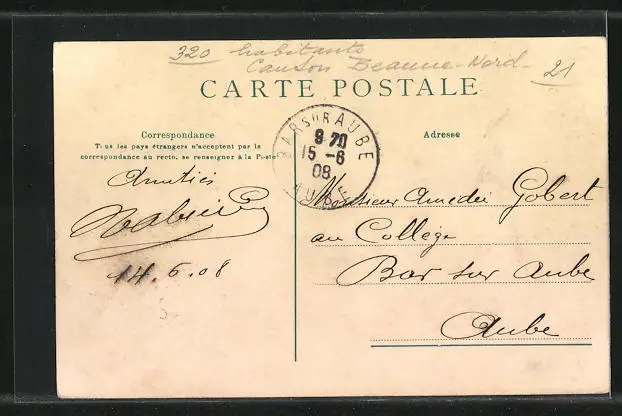 320 habitants
Canton Beaune-Nord - 21
CARTE POSTALE
Correspondance
Tous les pays étrangers n'acceptent pas la
correspondance au recto, se renseigner à la Poste
Adresse
BAR SUR AUBE
15 -6
08
AUBE
Amitiés
14.6.08
Monsieur Amédée Gobert
au Collège
Bar sur Aube
Aube